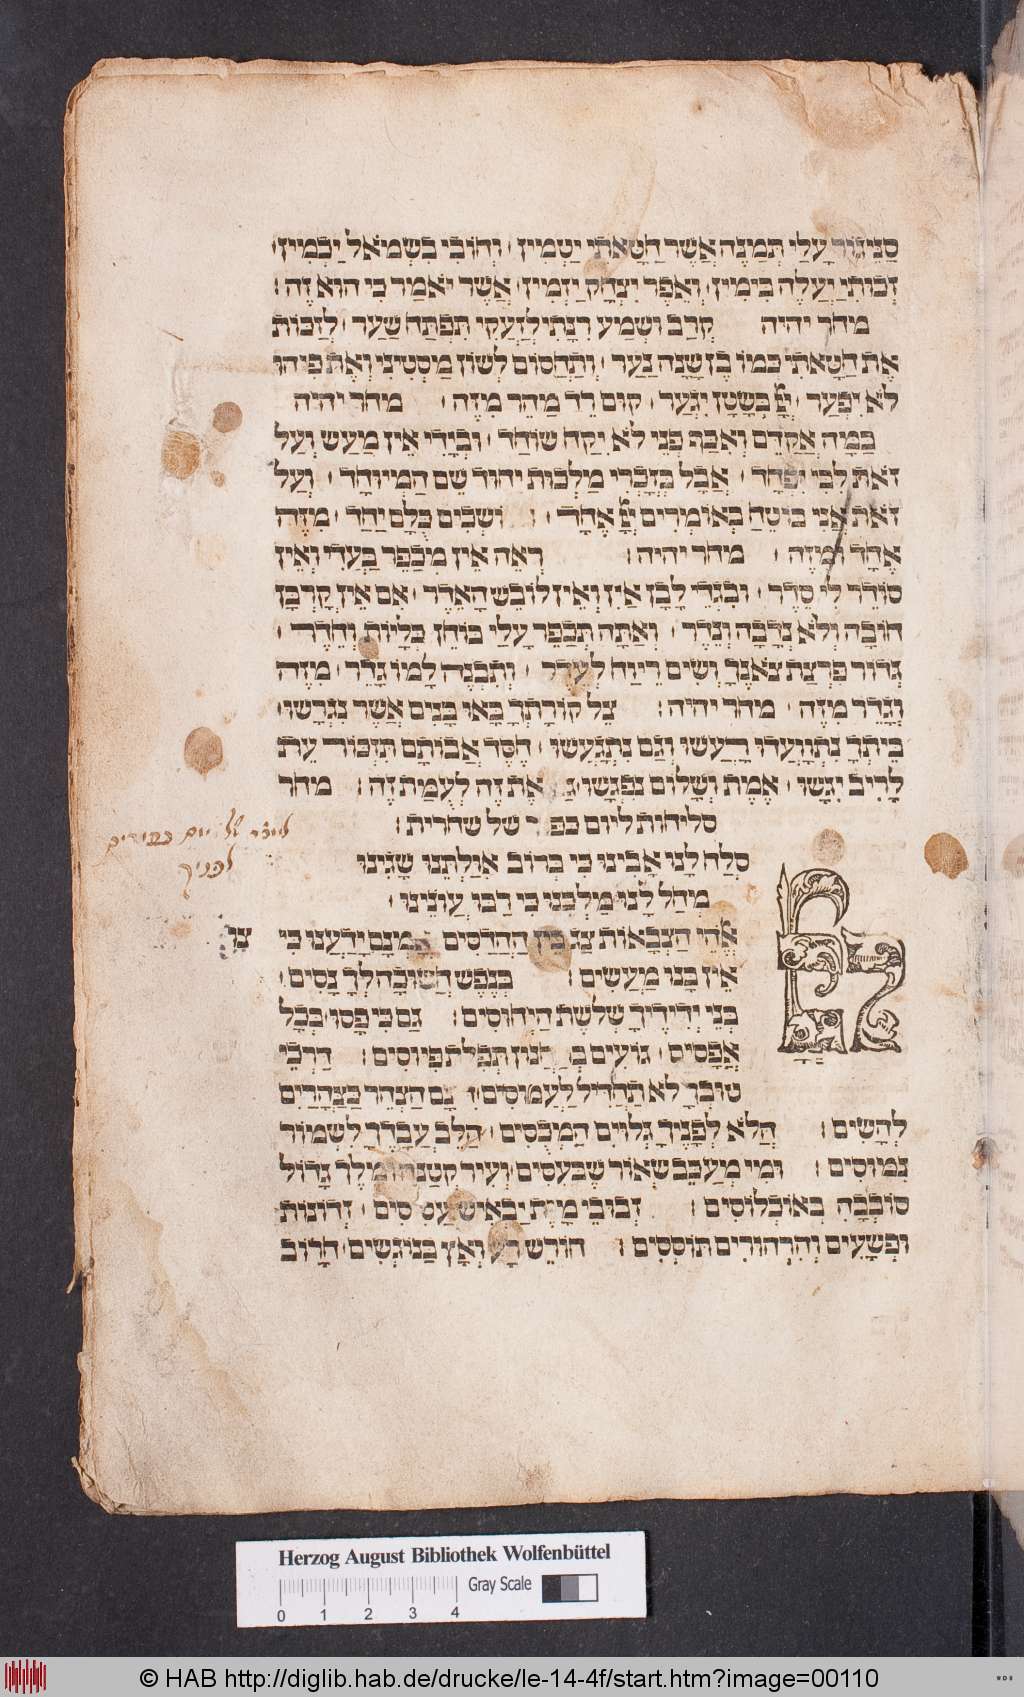 סַנֵּיגוֹר עָלַי תְּמַנֶּה אֲשֶׁר חַטָּאתִי יַטְמִין וְחוֹבִי בִּשְׂמֹאל יַבְמִין
זְכוּתִי יַעֲלֶה בִימִין וְאֵפֶר יִצְחָק יַזְמִין אֲשֶׁר יֹאמַר כִּי הוּא זֶה
מחר יהיה קְרַב וּשְׁמַע רִנָּתִי לְזַעֲקִי תִּפְתַּח שַׁעַר לְזַכּוֹת
אֶת חַטָּאתִי כְּמוֹ בֶן שָׁנָה נַעַר וְתַחְסוֹם לְשׁוֹן מַסְטִינִי וְאֶת פִּיהוּ
לֹא יִפְעַר בְּשָׂטָן יִגְעַר קוּם רֵד מַהֵר מִזֶּה מחר יהיה
בַּמָּה אֲקַדֵּם וְאִכַּף פְּנֵי לֹא יִקַּח שׁוֹחַד וּבְיָדִי אֵין מַעַשׂ וְעַל
זֹאת לִבִּי יִפְחַד אֲבָל בְּזָכְרִי מַלְכוּת יִחוּד שֵׁם הַמְיוּחָד וְעַל
זֹאת אֲנִי בוֹטֵחַ בְּאוֹמְרִים אֶחָד וּשְׁבִים כֻּלָּם יַחַד מִזֶּה
אֶחָד וּמִזֶּה מחר יהיה רְאֵה אֵין מְכַפֵּר בַּעֲדִי וְאֵין
סוֹדֵר לִי סֵדֶר וּבִגְדֵי לָבָן אַיִן וְאֵין לוֹבֵשׁ הָאֶדֶר אִם אֵין קָרְבָּן
חוֹבָה וְלֹא נְדָבָה וָנֶדֶר וְאַתָּה תְּכַפֵּר עָלַי כּוֹהֵן
גְּדוֹר פִּרְצַת צֹאנֶךָ וְשִׂים רֵיוַח לְעֵדֶר וְתִבְנֶה לָמוֹ גָדֵר מִזֶּה
וְגָדֵר מִזֶּה מחר יהיה צֵל קוֹרָתְךָ בָּאוּ בָּנִים אֲשֶׁר נִגְרָשׁוּ
בֵּיתְךָ נִתְוַעֲדוּ רָעֲשׁוּ וְגַם נִתְגָּעֲשׁוּ חֶסֶד אֲבוֹתָם תִּזְכּוֹר עֵת
לָרִיב יִגָּשׁוּ אֱמֶת וְשָׁלוֹם נִפְגָּשׁוּ אֶת זֶה לְעֻמַּת זֶה מחר
סליחות ליום של שחרית
סְלַח לָנוּ אָבִינוּ כִּי בְּרוֹב אִוַּלְתֵּנוּ שָׁגִינוּ
מְחַל לָנוּ מַלְכֵּנוּ כִּי רַבּוּ עֲוֹנֵינוּ
אֱלֹהֵי הַצְּבָאוֹת בֵּין הַהֲדַסִּים יָדַעְנוּ כִּי
אֵין בָּנוּ מַעֲשִׂים בְּנֶפֶשׁ הַשּׁוּבָה לְךָ נָסִים
בְּנֵי יְדִידֶיךָ שְׁלֹשֶׁת הַיְחוּסִים גַּם כִּי פָסוּ בְּכָל
אֲפָסִים גּוֹעִים תְּפִלַּת פִּיּוּסִים דַּרְכֵי
טוּבְךָ לֹא תַחְדִּיל לַעֲמוּסִים גָּם הַצֹּהַר בַּצָּהֳרַיִם
לְהָשִׂים הֲלֹא לְפָנֶיךָ גְלוּיִם הַמְכֻסִּים הַלֵּב עַבְדְּךָ לִשְׁמוֹר
נִמּוּסִים וּמִי מְעַכֵּב שְׂאוֹר שֶׁבָּעִסִּים וְעִיר קְטַנָּה וּמֶלֶךְ גָּדוֹל
סוֹבְבָהּ בְּאוּכְלוּסִים זְבוּבֵי מָוֶת יַבְאִישׁ זְדוֹנוֹת
וּפְשָׁעִים וְהִרְהוּרִים תּוֹסְסִים חוֹרֵשׁ רָע וְאָץ בַּנּוֹגְשִׂים הָרוֹב
Herzog August Bibliothek Wolfenbüttel
Gray Scale
0 1 2 3 4
© HAB http://diglib.hab.de/drucke/le-14-4f/start.htm?image=00110